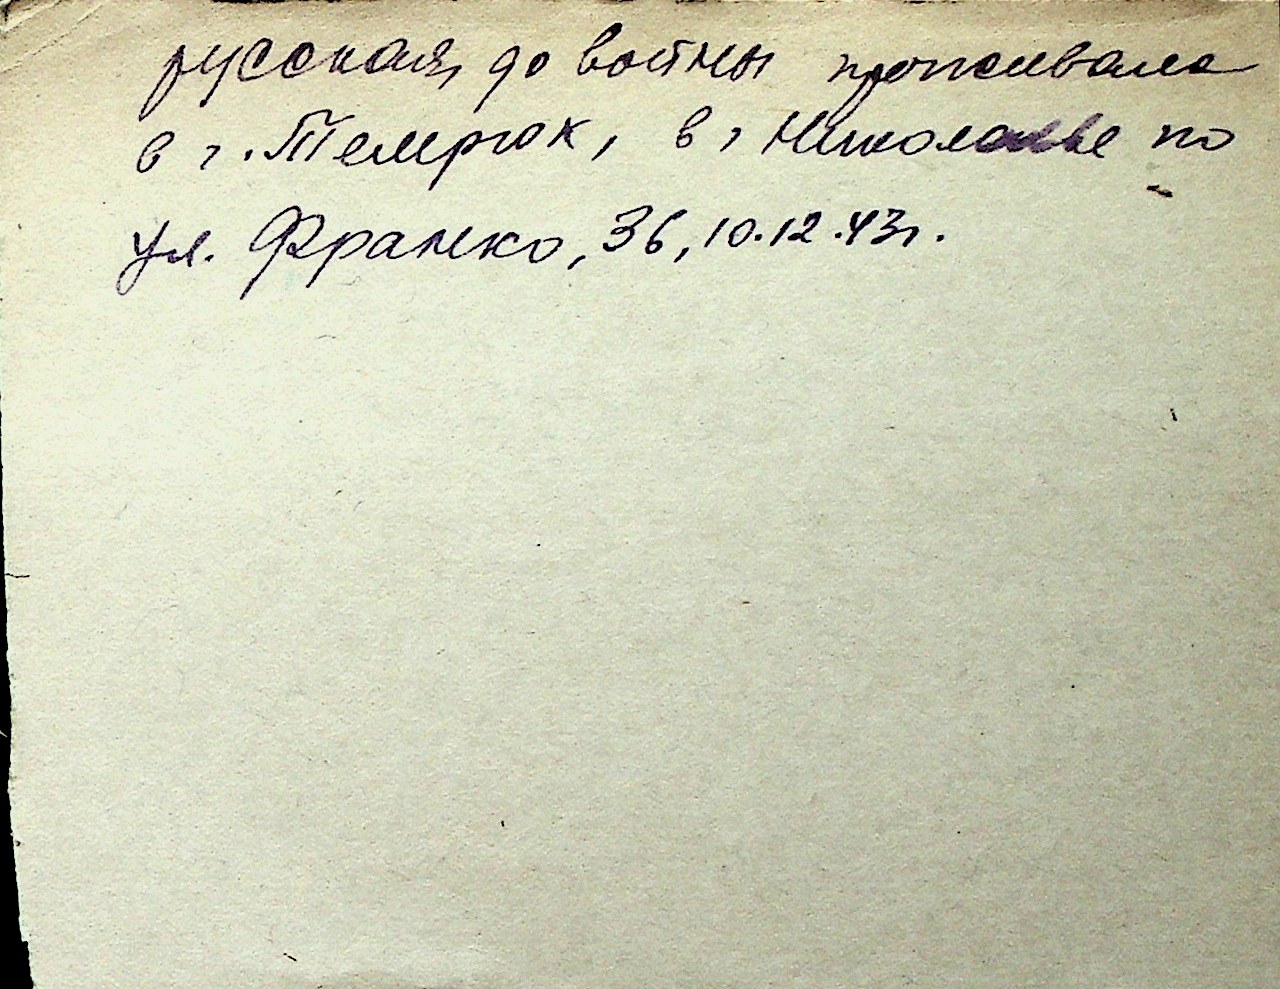 русская, до войны проживала
в г. Темрюк, в г Николаеве по
ул. Франко, 36, 10.12.43г.